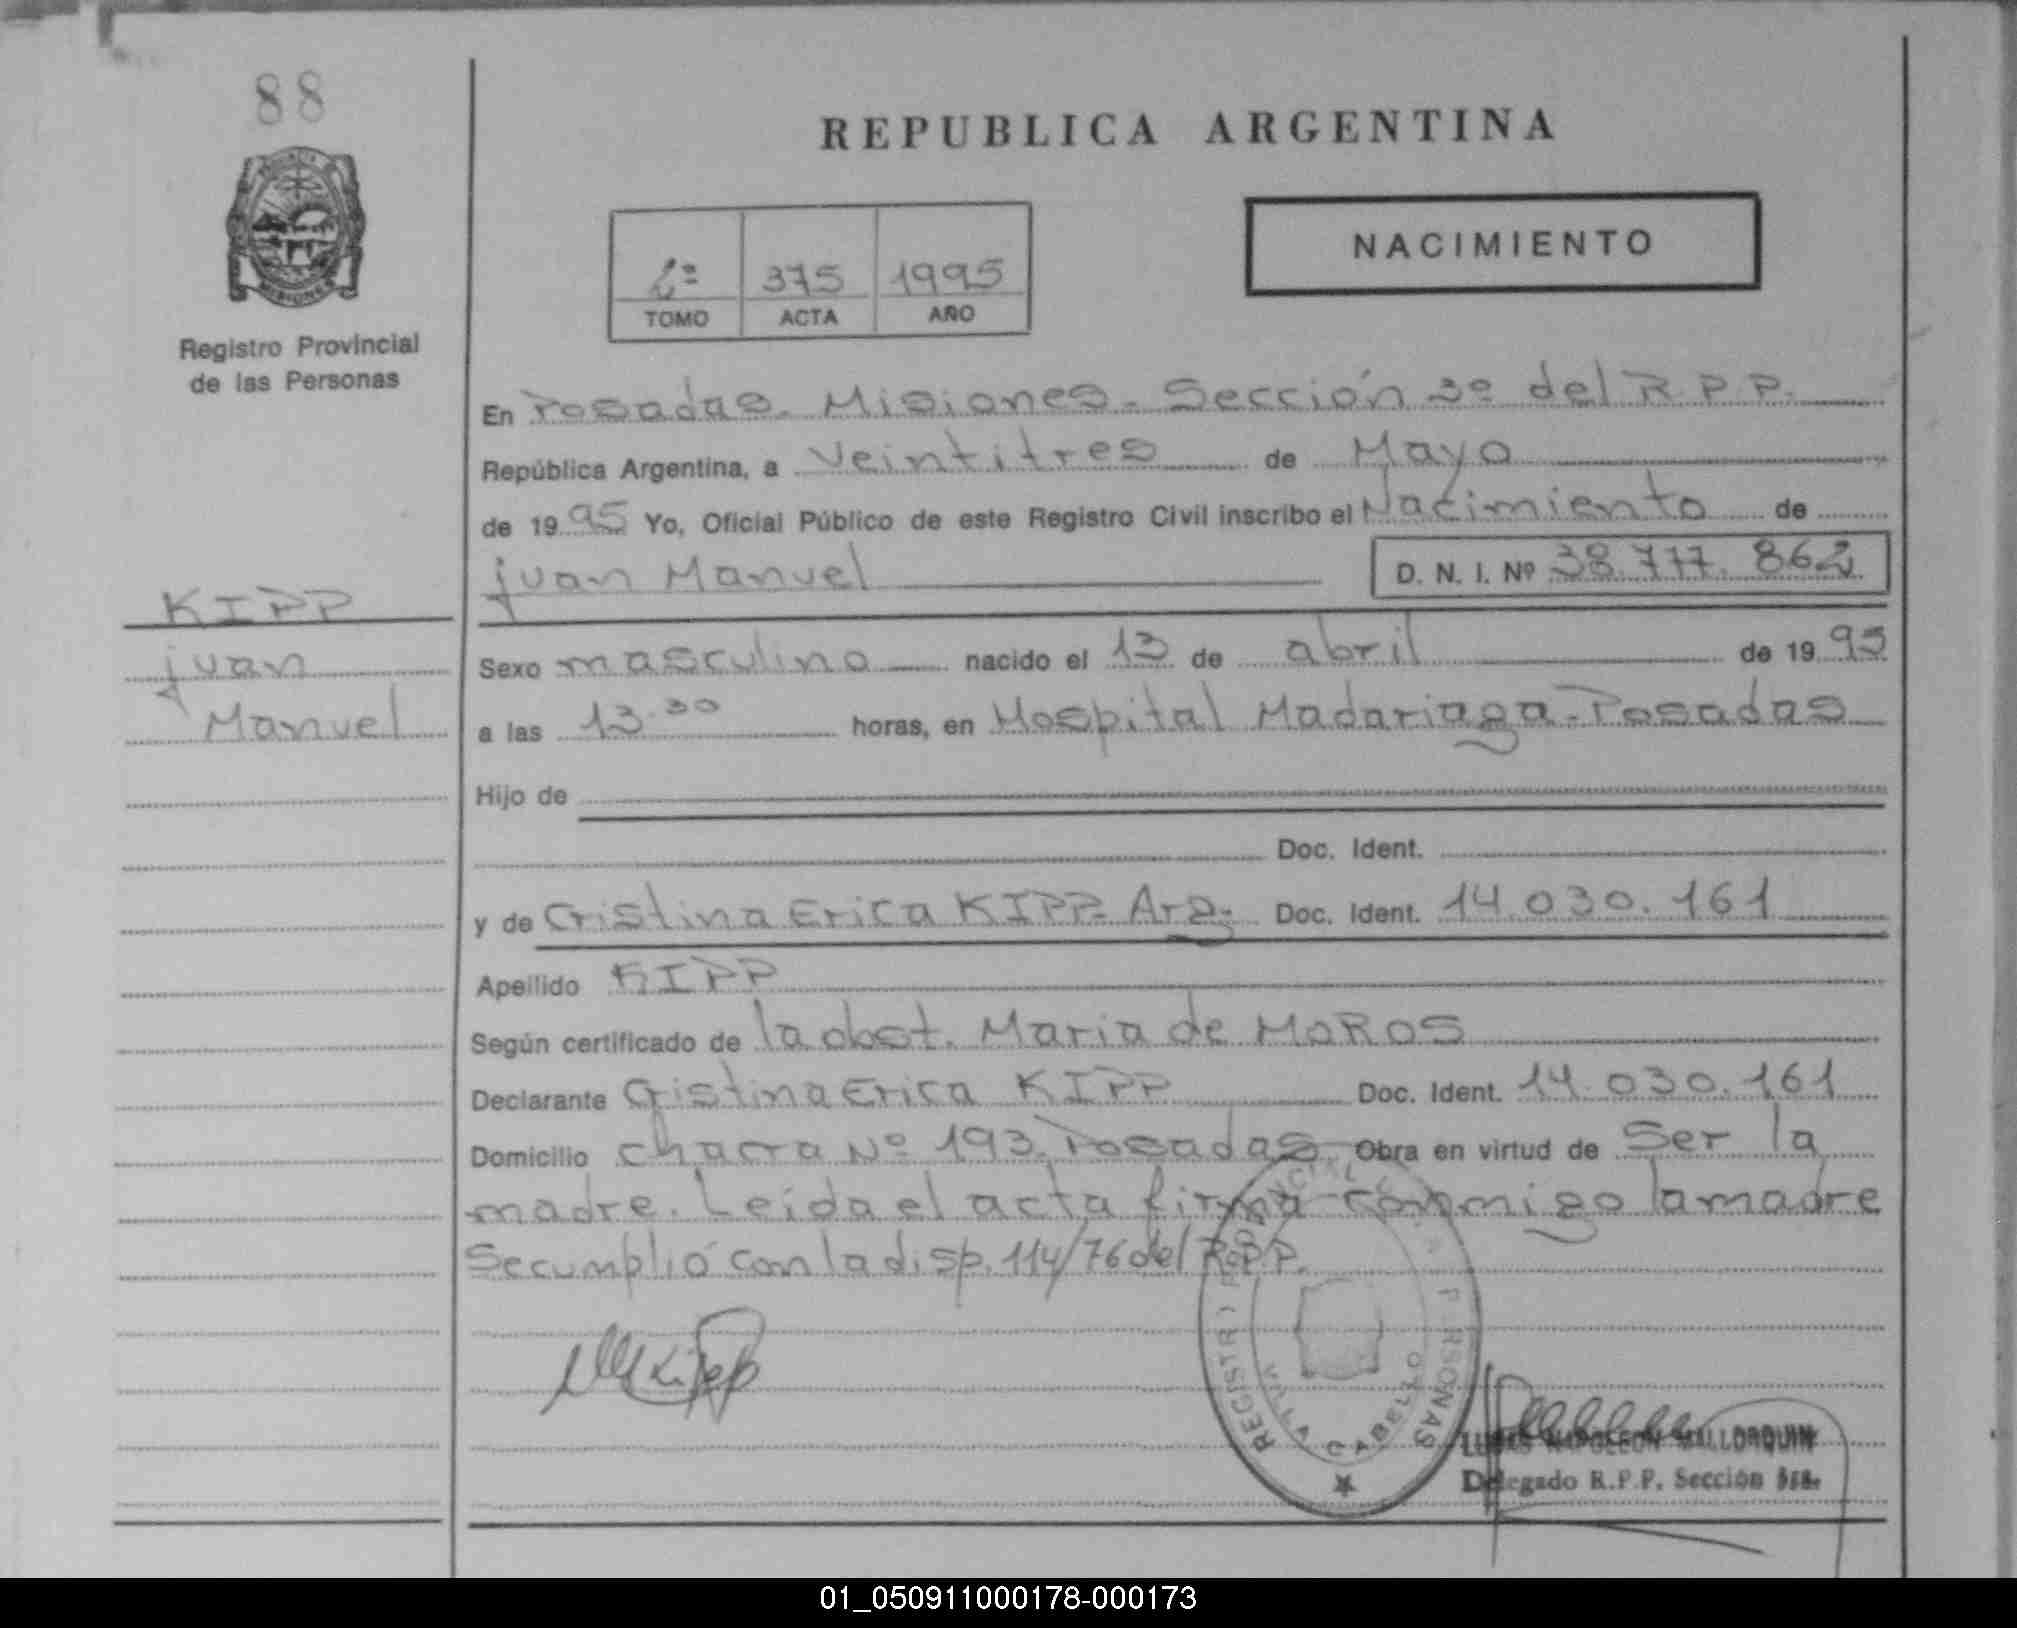 88
REPUBLICA ARGENTINA
NACIMIENTO
2º 375 1995
TOMO ACTA AÑO
MISIONES
Registro Provincial
de las Personas
En Posadas. Misiones. Sección 3º del R.P.P.
República Argentina, a Veintitres de Mayo
de 1995 Yo, Oficial Público de este Registro Civil inscribo el Nacimiento de
juan Manuel D. N. I. Nº 38.777.862
KIPP
juan
Manuel
Sexo masculino nacido el 13 de abril de 1995
a las 13.30 horas, en Hospital Madariaga-Posadas
Hijo de
Doc. Ident.
y de Cristina Erica KIPP- Arg. Doc. Ident. 14.030.161
Apellido KIPP
Según certificado de la obst. Maria de MOROS
Declarante Cristina Erica KIPP Doc. Ident. 14.030.161
Domicilio chacra Nº 193. Posadas Obra en virtud de Ser la
madre. Leída el acta firma conmigo la madre
Se cumplió con la disp. 114/76 del R.P.P.
Kipp
REGISTRO PROVINCIAL PERSONAS
VILLA CABELLO
LUCAS NAPOLEON MALLORQUIN
Delegado R.P.P. Sección 3ra.
01_050911000178-000173